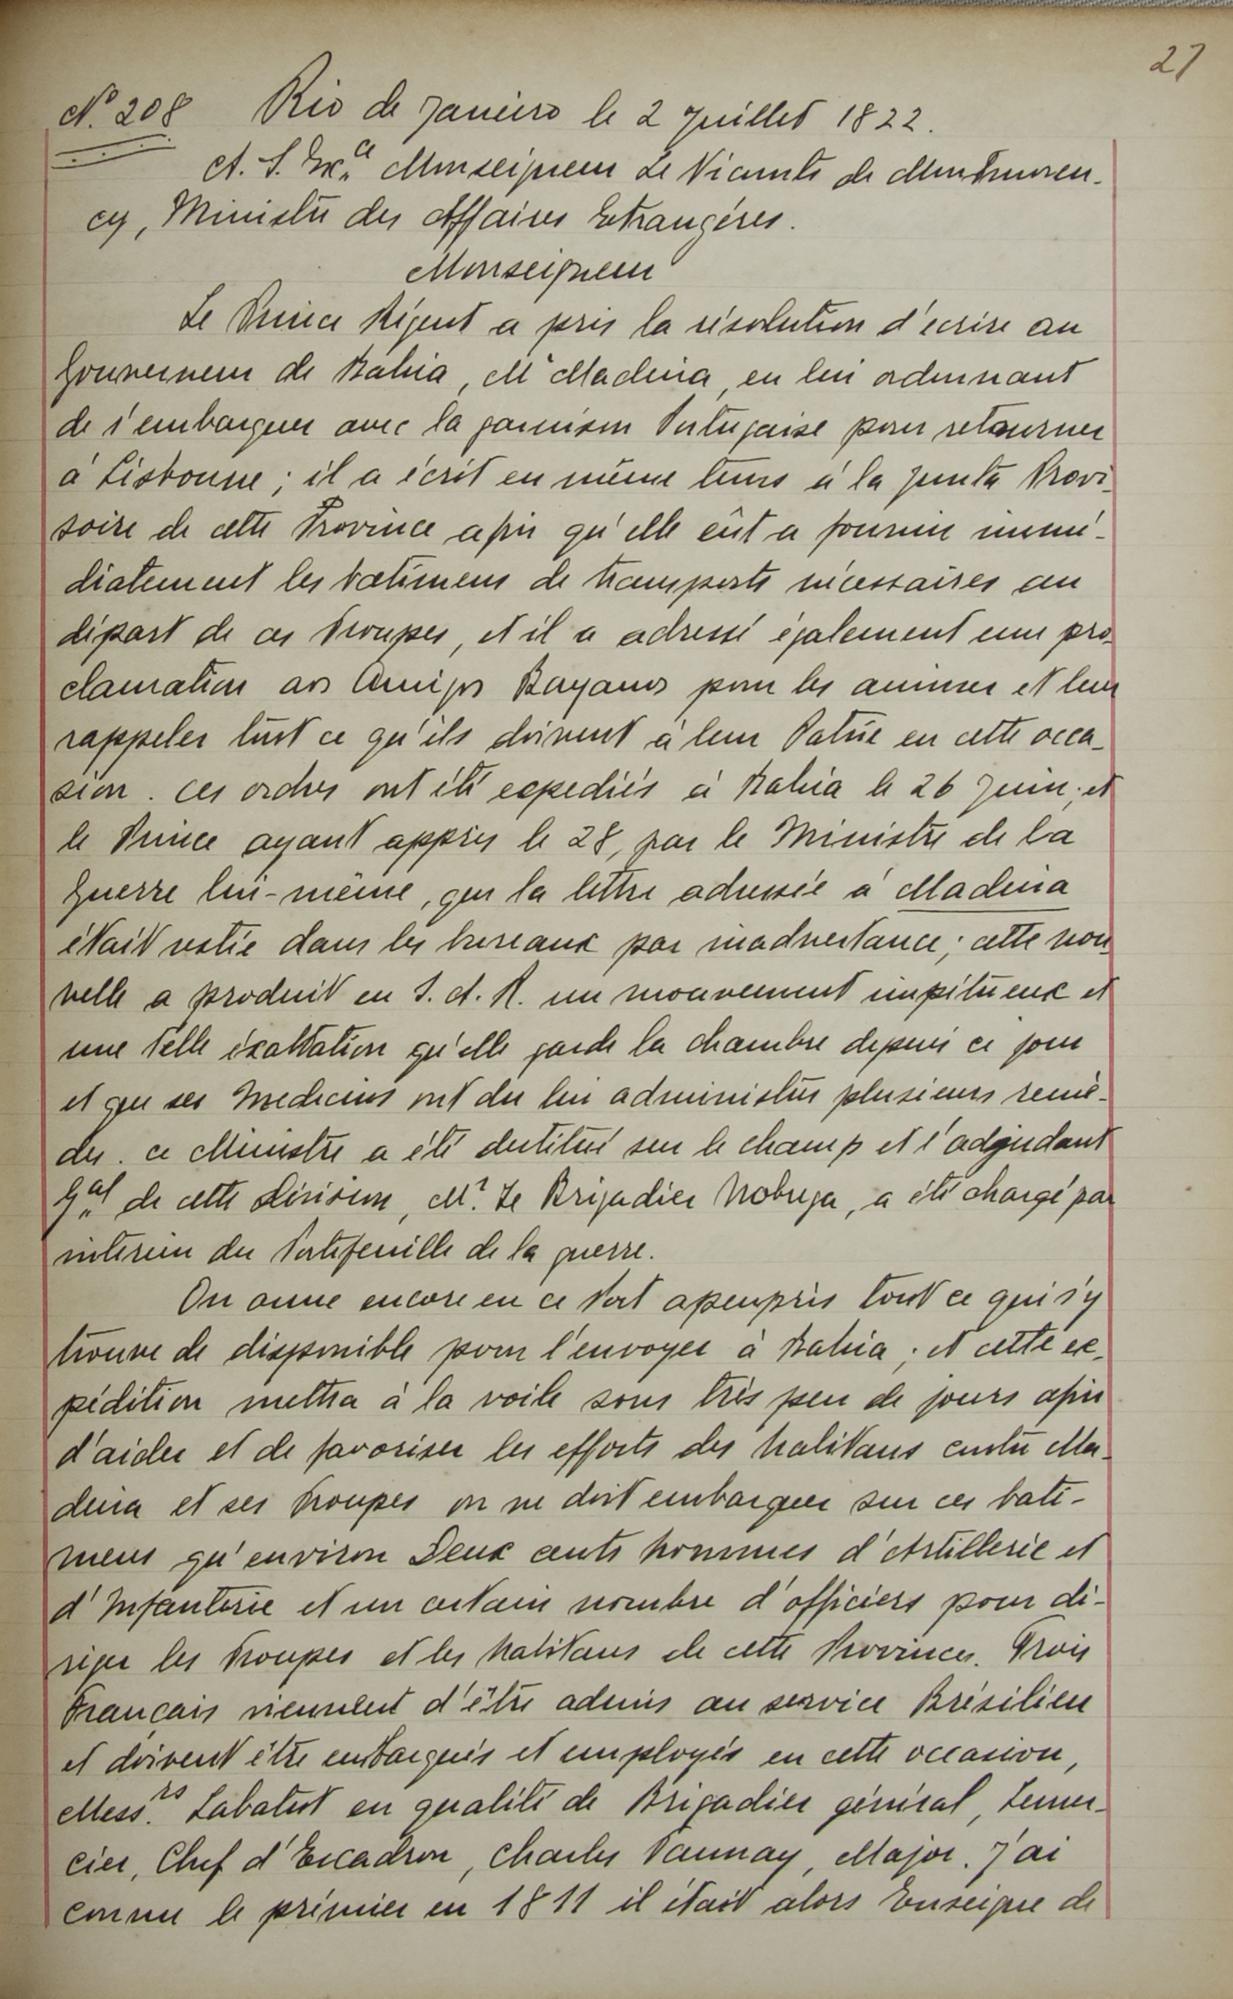 27
Nº 208 Rio de Janeiro le 2 Juillet 1822.
A. S. Exce Monseigneur Le Vicomte de Montmoren-
cy, Ministre des Affaires Etrangéres.
Monseigneur
Le Prince Régent a pris la résolution d'écrire au
Gouverneur de Bahia, Mr Madeira, en lui ordonnant
de s'embarquer avec la garnison Portugaise pour retourner
à Lisbonne; il a écrit en même tems à la junta Provi-
soire de cette Province afin qu'elle eût a fournir immé-
diatement les batimens de transports nécessaires au
départ de ces troupes, et il a adressé également une pro-
clamation aos Amigos Bayanos pour les animer et leur
rappeler tout ce qu'ils doivent à leur Patrie en cette occa-
sion. ces ordres ont été expediés à Bahia le 26 Juin; et
le Prince ayant appris le 28, par le Ministre de la
Guerre lui-même, que la lettre adressée à Madeira
était restée dans les bureaux par inadvertance; cette nou
velle a produit en S. A. R. un mouvement impétueux et
une telle éxaltation qu'elle garde la chambre depuis ce jour
et que ses Medecins ont du lui administrer plusieurs remé-
des. ce Ministre a été destitué sur le champ et l'adjudant
Gal de cette division, Mr. Le Brigadier Nobrega, a été chargé par
interim du Portefeuille de la guerre.
On arme encore en ce Port apeuprès tout ce qui s'y
trouve de disponible pour l'envoyer à Bahia; et cette ex-
pédition mettra à la voile sous très peu de jours afin
d'aider et de favoriser les efforts des habitans contre Ma-
deira et ses troupes on ne doit embarquer sur ces bati-
mens qu'environ Deux cents hommes d'Artillerie et
d'Infanterie et un certain nombre d'officiers pour di-
riger les troupes et les habitans de cette Province. Trois
Français viennent d'être admis au service Brésilien
et doivent être embarqués et employés en cette occasion,
Messrs. Labatut en qualité de Brigadier général, Lemer-
cier, Chef d'Escadron, Charles Taunay, Major. J'ai
connu le prémier en 1811 il était alors Enseigne de